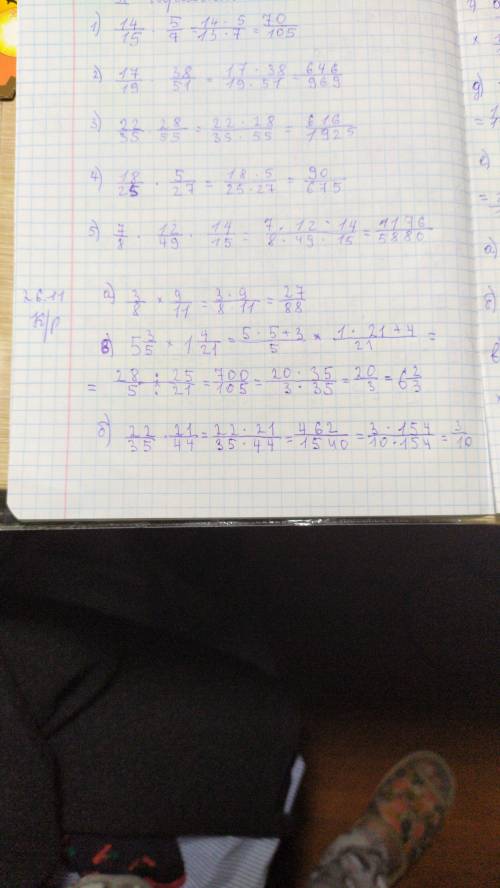 1) 14/15 · 5/7 = 14 · 5/15 · 7 = 70/105
2) 17/19 38/51 = 17 · 38/19 · 51 = 646/969
3) 22/35 28/55 = 22 · 28/35 · 55 = 616/1925
4) 18/25 · 5/27 = 18 · 5/25 · 27 = 90/675
5) 7/8 · 12/49 · 14/15 = 7 · 12 · 14/8 · 49 · 15 = 1176/5880
26.11
К/р
а) 3/8 × 9/11 = 3 · 9/8 · 11 = 27/88
в) 5 3/5 × 1 4/21 = 5 · 5 + 3/5 × 1 · 21 + 4/21 =
= 28/5 : 25/21 = 700/105 = 20 · 35/3 · 35 = 20/3 = 6 2/3
б) 22/35 · 21/44 = 22 · 21/35 · 44 = 462/1540 = 3 · 154/10 · 154 = 3/10